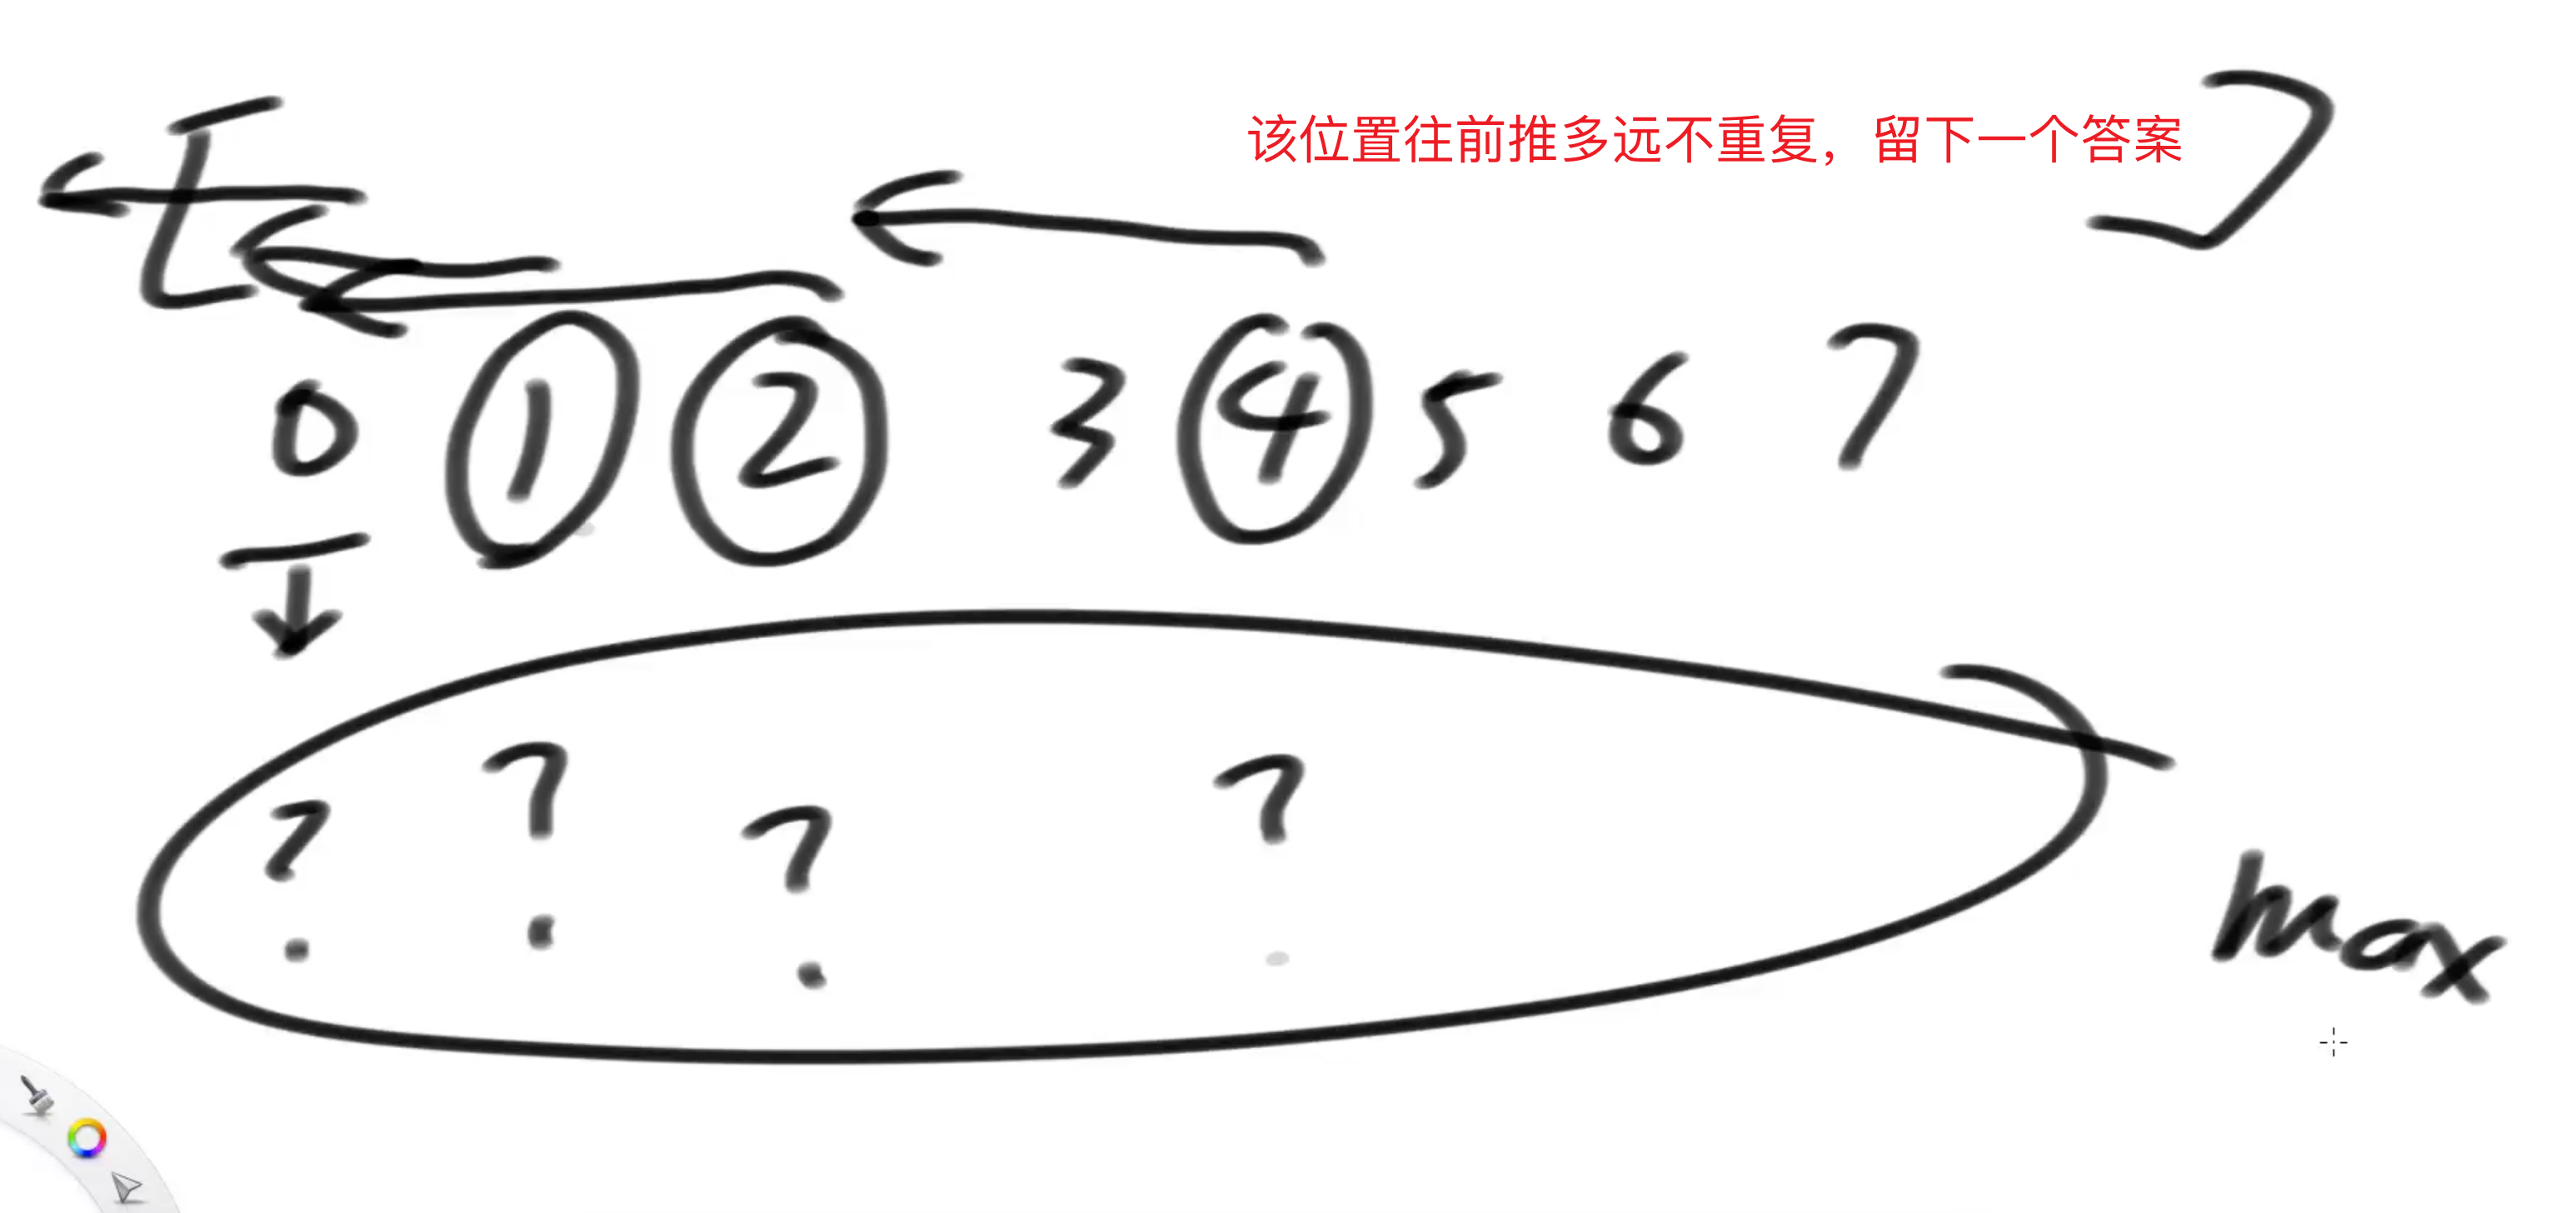 该位置往前推多远不重复，留下一个答案
[ ]
0 1 2 3 4 5 6 7
? ? ? ?
max